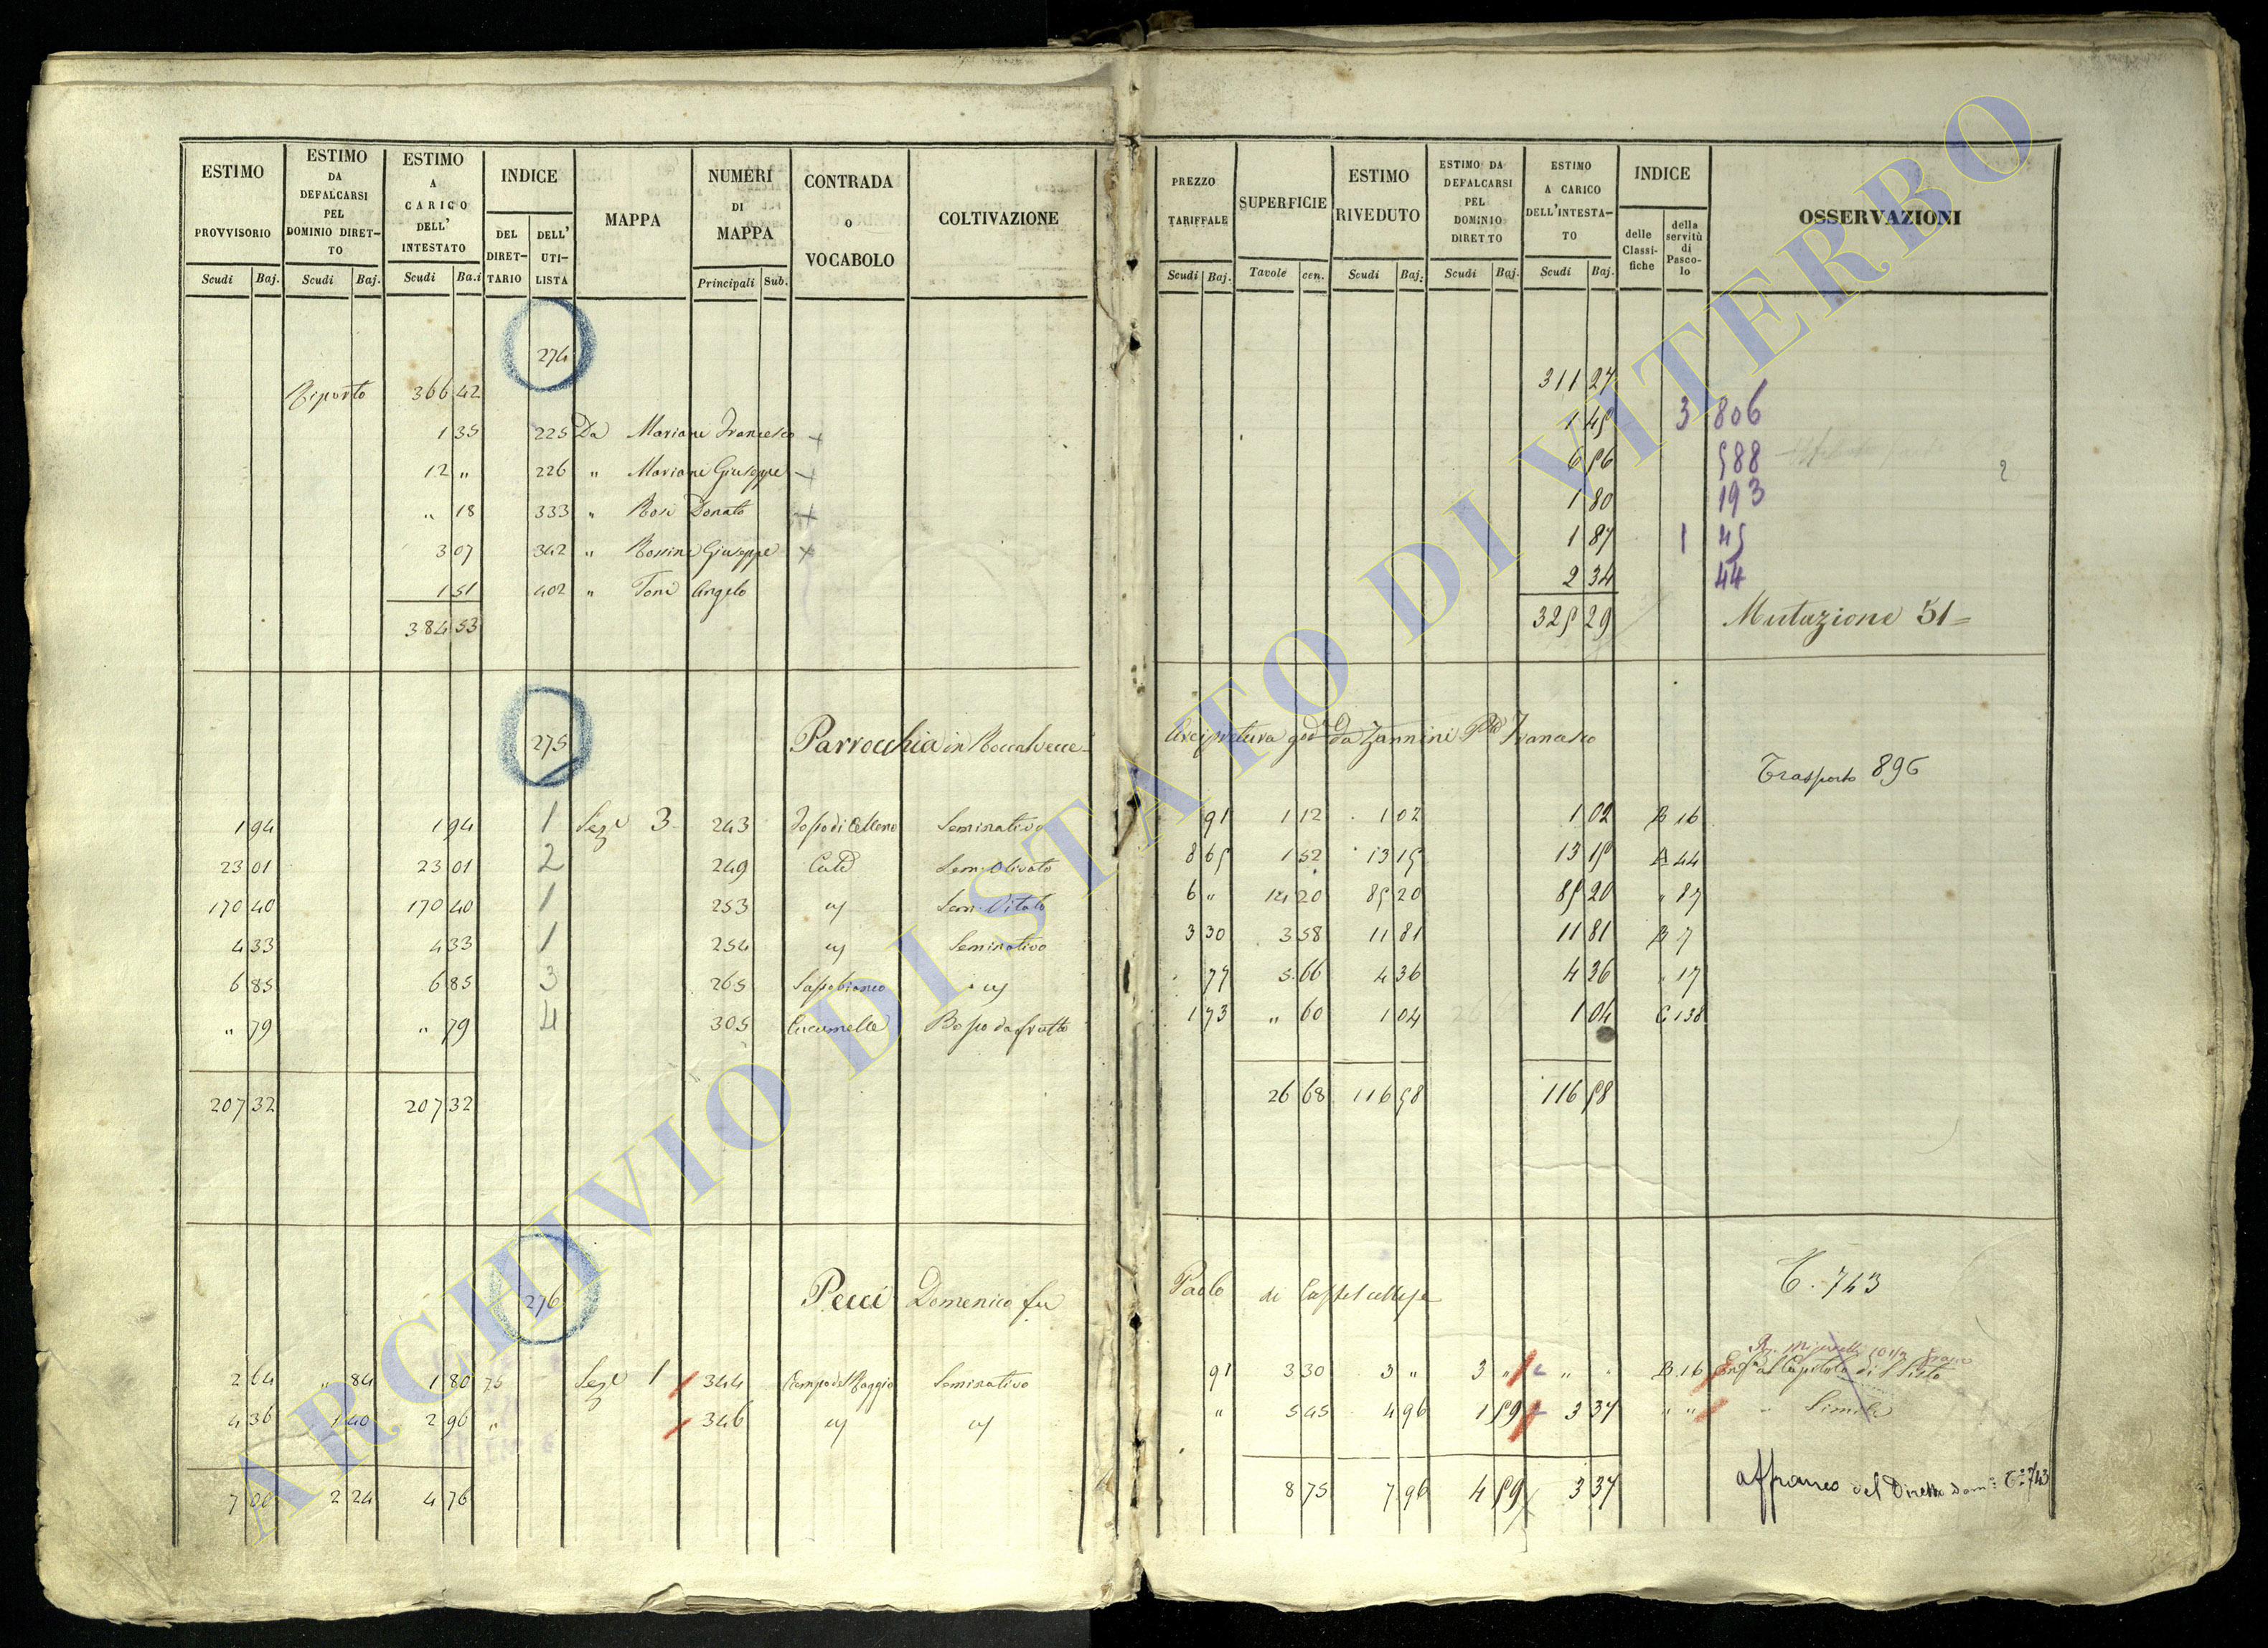 ESTIMO PROVVISORIO Scudi Baj.
ESTIMO DA DEFALCARSI PEL DOMINIO DIRET-TO Scudi Baj.
ESTIMO A CARICO DELL' INTESTATO Scudi Ba.i
INDICE DEL DIRET-TARIO DELL' UTI-LISTA
MAPPA
NUMERI DI MAPPA Principali Sub.
CONTRADA o VOCABOLO
COLTIVAZIONE
PREZZO TARIFFALE Scudi Baj.
SUPERFICIE Tavole cen.
ESTIMO RIVEDUTO Scudi Baj.
ESTIMO DA DEFALCARSI PEL DOMINIO DIRETTO Scudi Baj.
ESTIMO A CARICO DELL'INTESTA-TO Scudi Baj.
INDICE delle Classi-fiche della servitù di Pasco-lo
OSSERVAZIONI
274
Riporto 366 42 311 27
1 35 225 Da Mariani Francesco + 1 45 3 806
12 " 226 " Mariani Giuseppe + 6 56 588
" 18 333 " Rosi Donato + 1 80 193
3 07 342 " Rossini Giuseppe x 1 87 1 45
1 51 402 " Toni Angelo 2 34 44
384 53 325 29 Mutazione 51=
275
Parrocchia in Roccalvecce Arcipretura Zannini Francesco
Trasporto 896
1 94 1 94 1 Sez.e 3 243 Fosso di Celleno Seminativo 91 1 12 1 02 1 02 B 16
23 01 23 01 2 249 Sem. Olivato 8 65 1 52 13 15 13 15 A 44
170 40 170 40 1 253 Sem. Vitato 6 " 14 20 85 20 85 20 " 87
4 33 4 33 1 254 Seminativo 3 30 3 58 11 81 11 81 B 7
6 85 6 85 3 265 Sassobianco 77 5 66 4 36 4 36 " 17
" 79 " 79 4 305 Cucumella Bosso da frutto 1 73 " 60 1 04 1 04 C 138
207 32 207 32 26 68 116 58 116 58
276
Pecci Domenico fu Paolo di Castel cellesi T. 743
2 64 " 84 1 80 75 Sez.e 1 344 Campo del Maggio Seminativo 91 3 30 3 " 3 " " B 16 al Capitolo di S Sisto
4 36 1 40 2 96 " 346 " 5 45 4 96 1 59 3 37 " " " Simile
7 00 2 24 4 76 8 75 7 96 4 59 3 37 affranco del Diretto Dom.o T. 743
ARCHIVIO DI STATO DI VITERBO